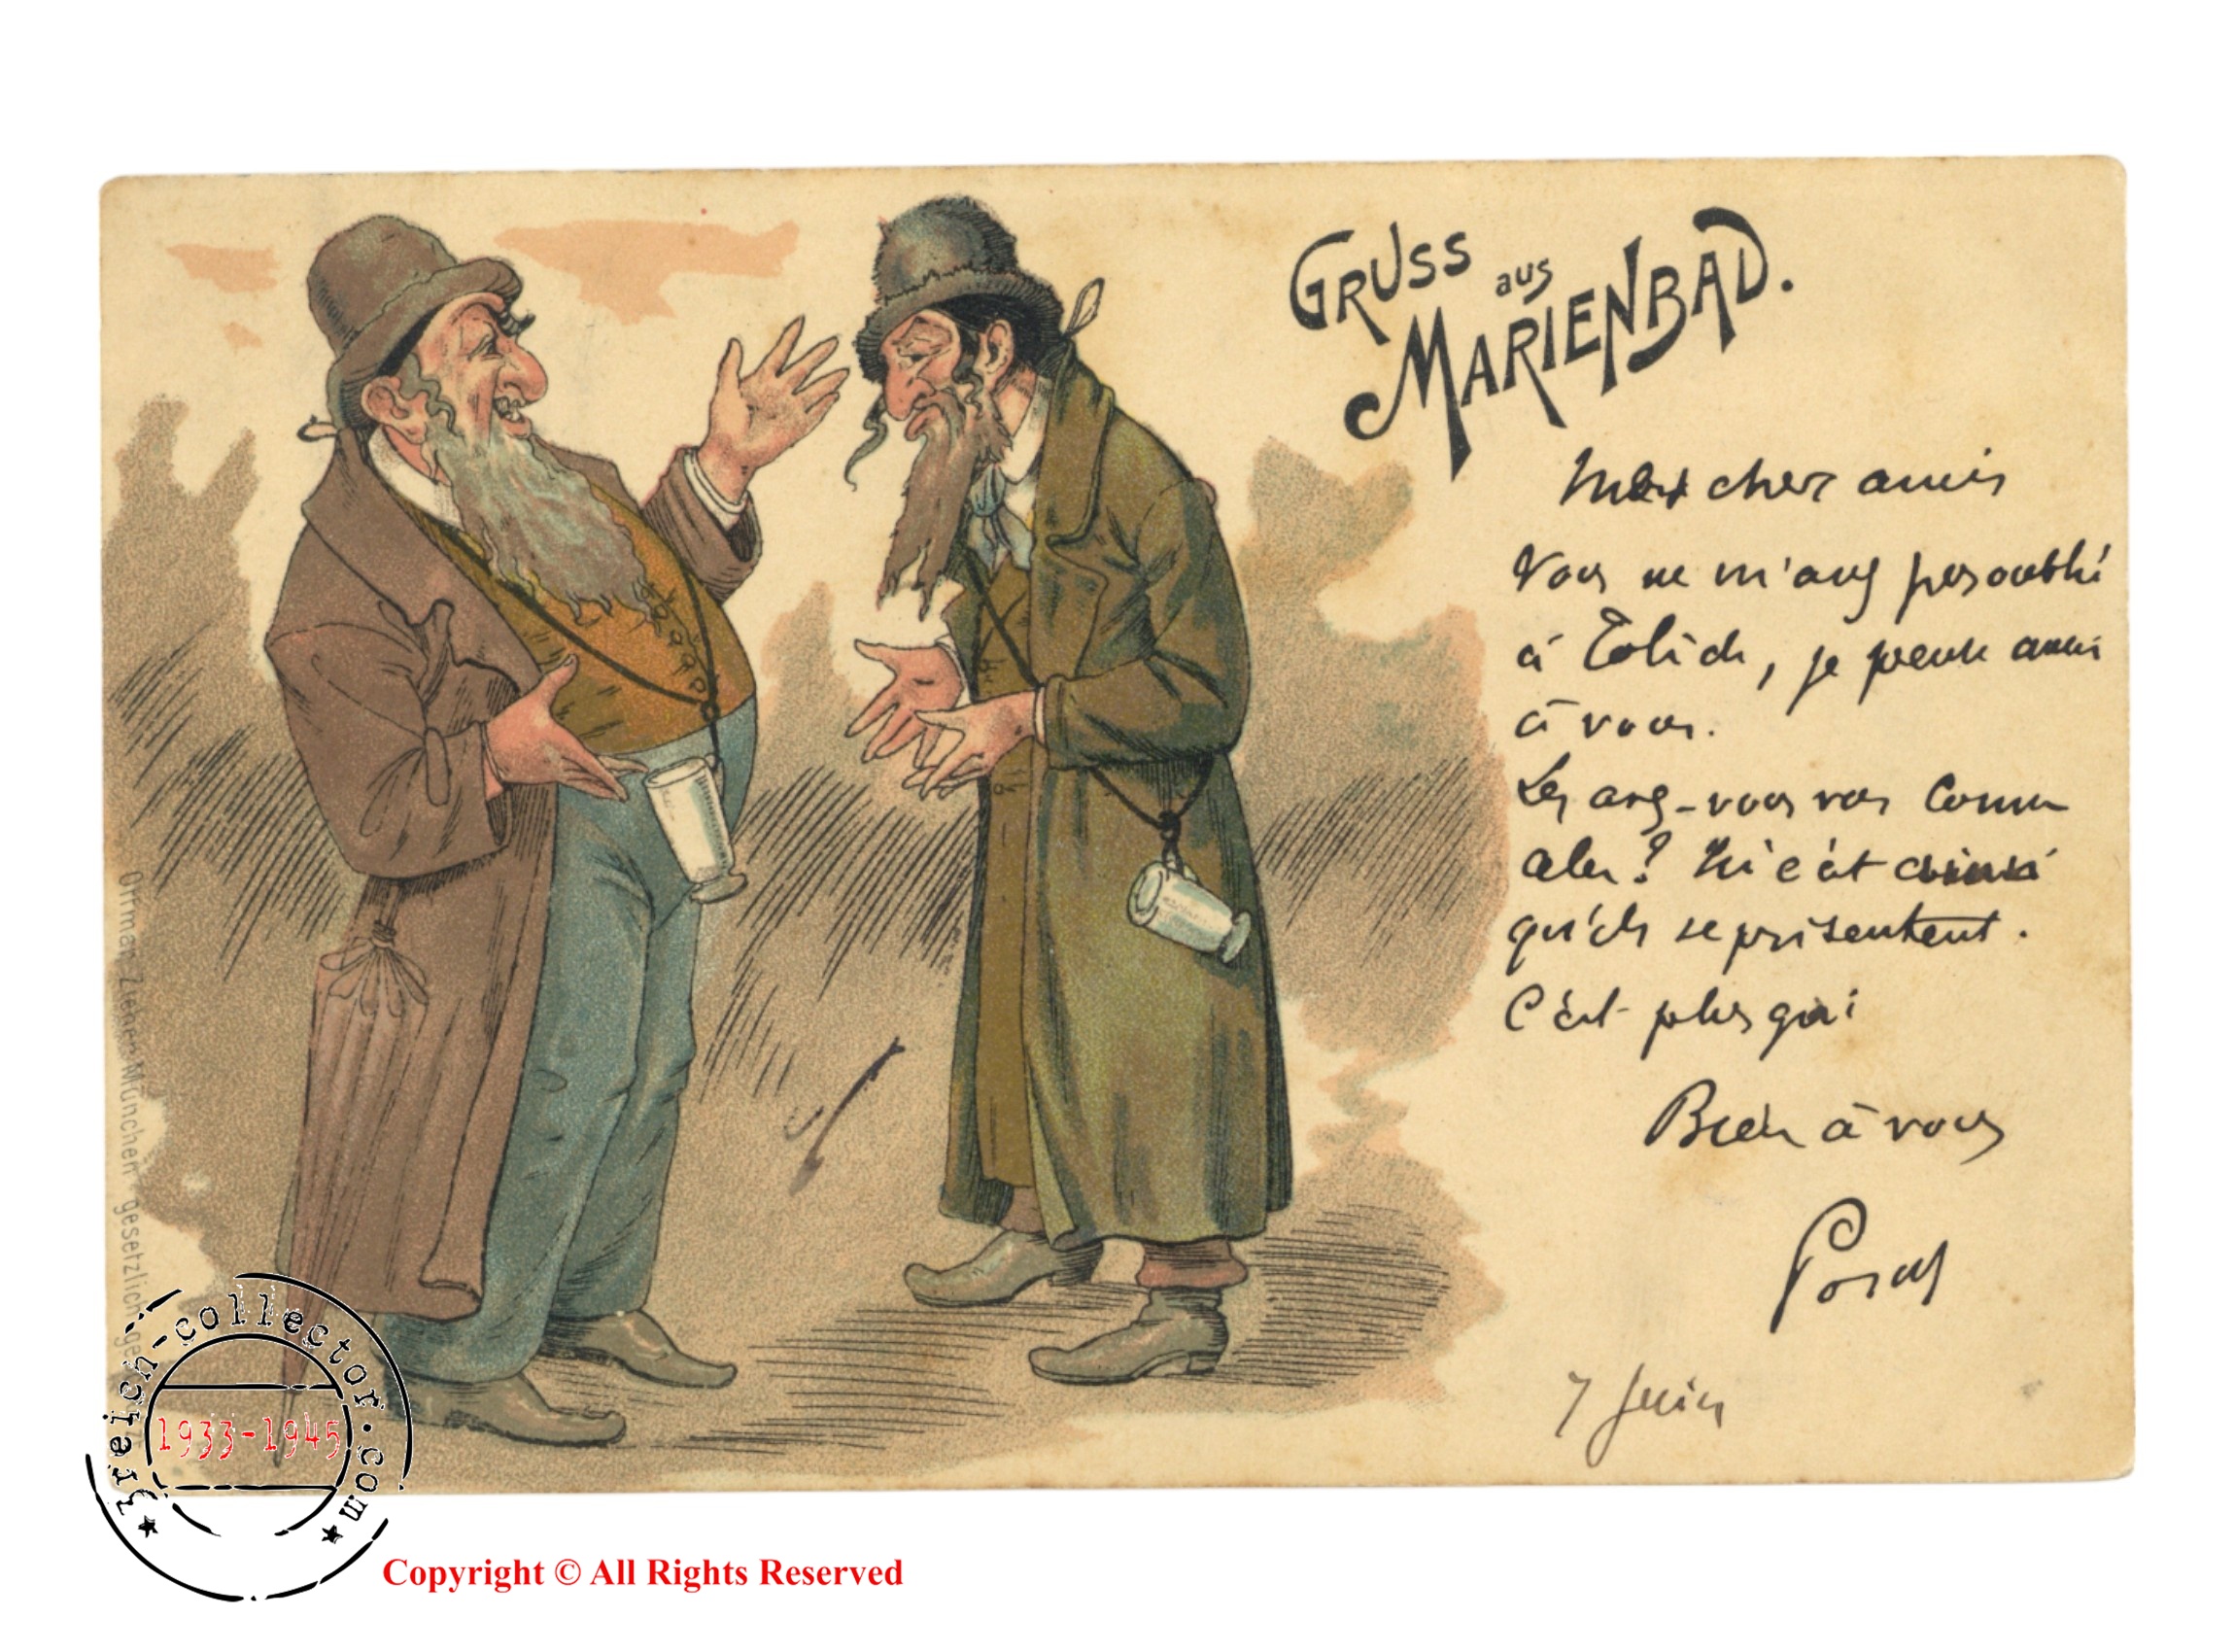 GRUSS aus
MARIENBAD.
Mes chers amis
Vous ne m'avez pas oublié
à , je pense aussi
à vous.
Les avez-vous vos
? si c'est ainsi
qu'ils se présentent.
C'est plus gai
Bien à vous
7 Juin
Ottmar Zieher München gesetzlich
3reich-collector.com
1933-1945
Copyright © All Rights Reserved